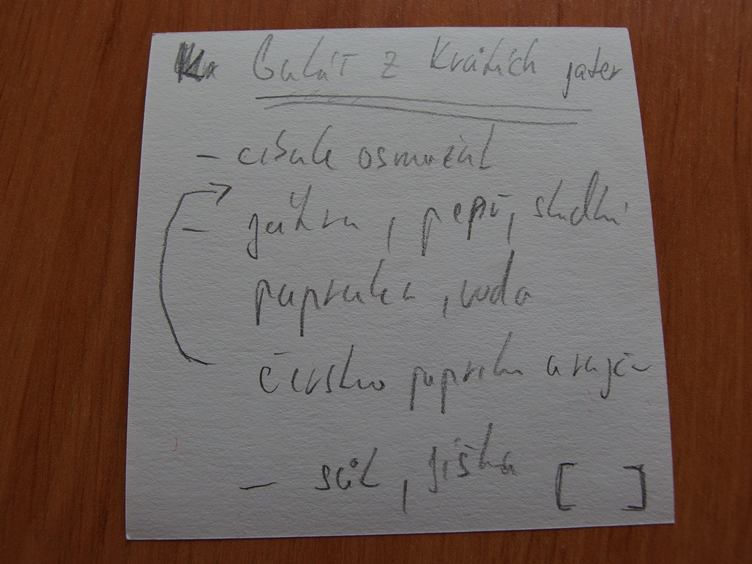 Guláš z Králičích jater
- cibule osmažit
- játra, pepř, sladká
paprika, voda
čerstvá paprika a rajče
- sůl, jíška [ ]